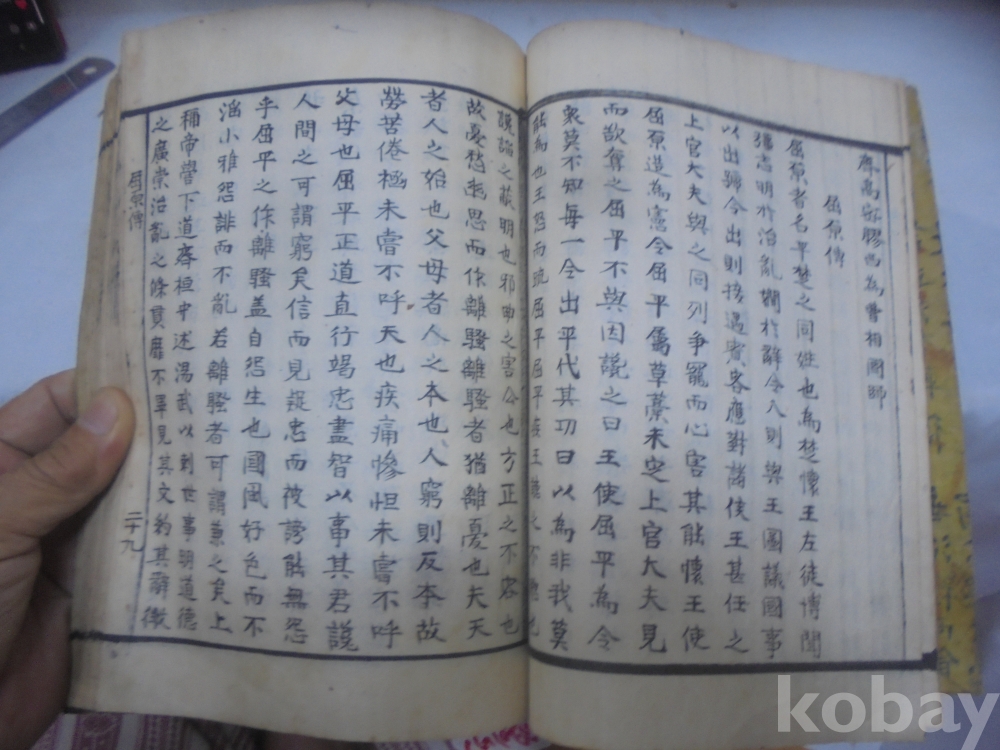 齊高密膠西爲曹相國師
屈原傳
屈原者名平楚之同姓也爲楚懷王左徒博聞
強志明於治亂嫺於辭令入則與王圖議國事
以出號令出則接遇賓客應對諸侯王甚任之
上官大夫與之同列爭寵而心害其能懷王使
屈原造爲憲令屈平屬草藁未定上官大夫見
而欲奪之屈平不與因讒之曰王使屈平爲令
衆莫不知每一令出平伐其功曰以爲非我莫
能爲也王怒而疏屈平屈平疾王聽之不聰也
讒諂之蔽明也邪曲之害公也方正之不容也
故憂愁幽思而作離騷離騷者猶離憂也夫天
者人之始也父母者人之本也人窮則反本故
勞苦倦極未嘗不呼天也疾痛慘怛未嘗不呼
父母也屈平正道直行竭忠盡智以事其君讒
人間之可謂窮矣信而見疑忠而被謗能無怨
乎屈平之作離騷蓋自怨生也國風好色而不
淫小雅怨誹而不亂若離騷者可謂兼之矣上
稱帝嚳下道齊桓中述湯武以刺世事明道德
之廣崇治亂之條貫靡不畢見其文約其辭微
屈原傳
二十九
kobay